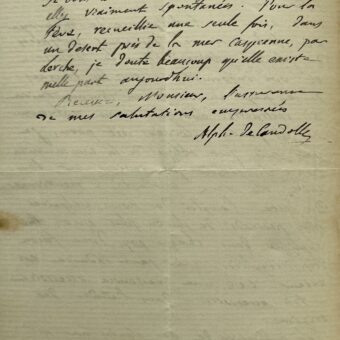 elles vraiment spontanées. Pour la
fève, recueillie une seule fois, dans
un desert près de la mer caspienne, par
Lerche, je doute beaucoup qu'elle existe
nulle part aujourdhui.
Recevez, Monsieur, l'assurance
de mes salutations empressées
Alph. de Candolle